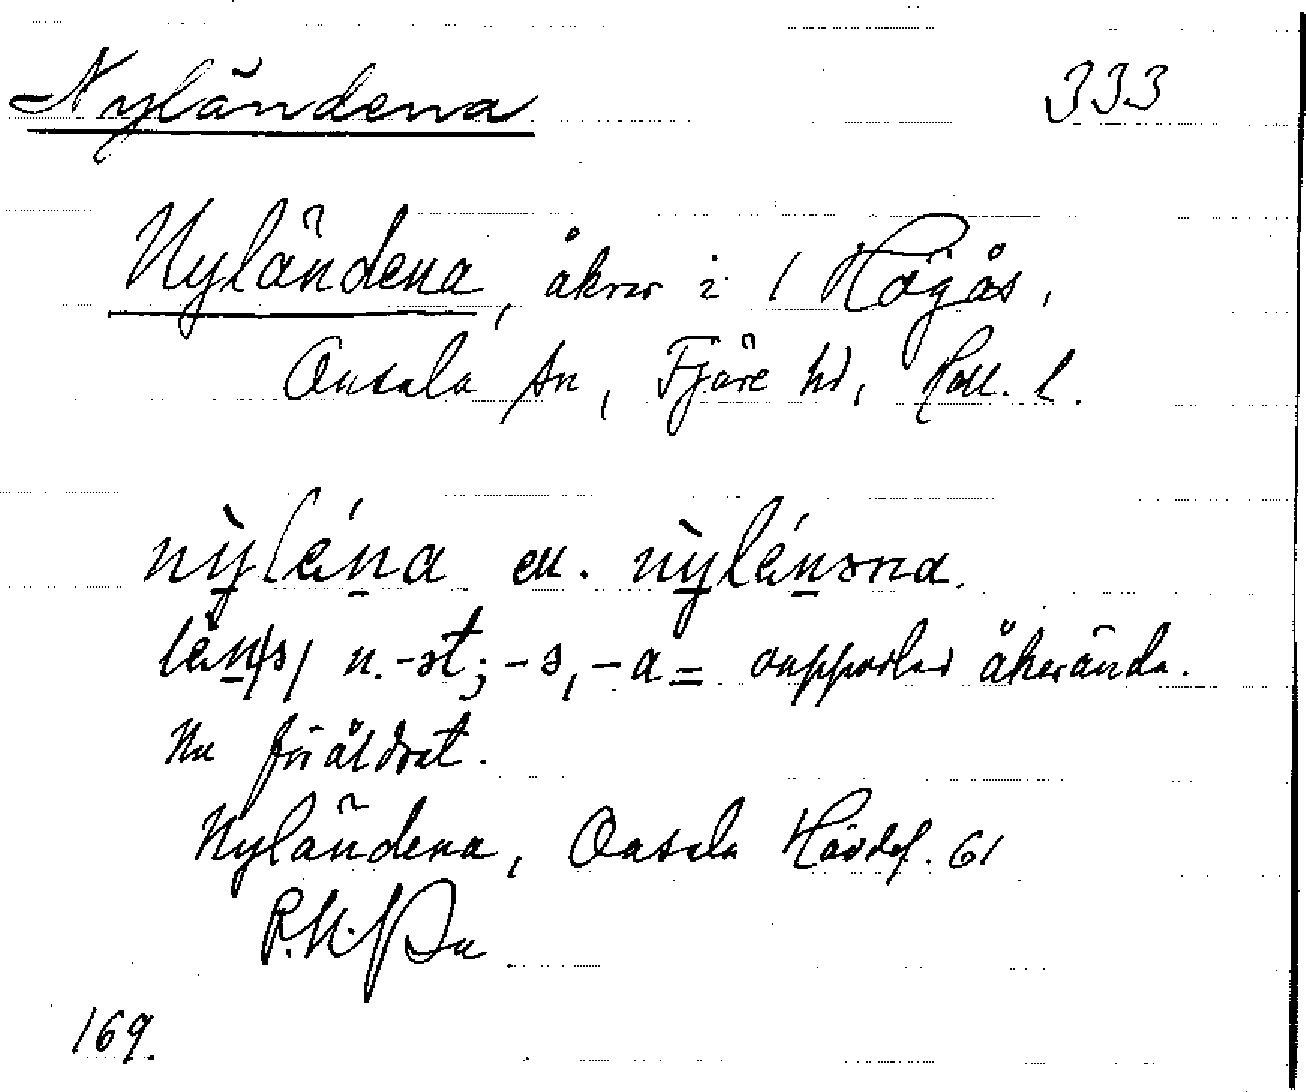 Nyländena 333
Nyländena, åkrar i 1 Högås,
Onsala sn, Fjäre hd, Hall. l.
nỳléna ell. nỳlénərna.
län(s) n. -ət; -s, -a = uppodlad åkerända.
Nu föråldrat.
Nyländena, Onsala Hävdef. 61
169.